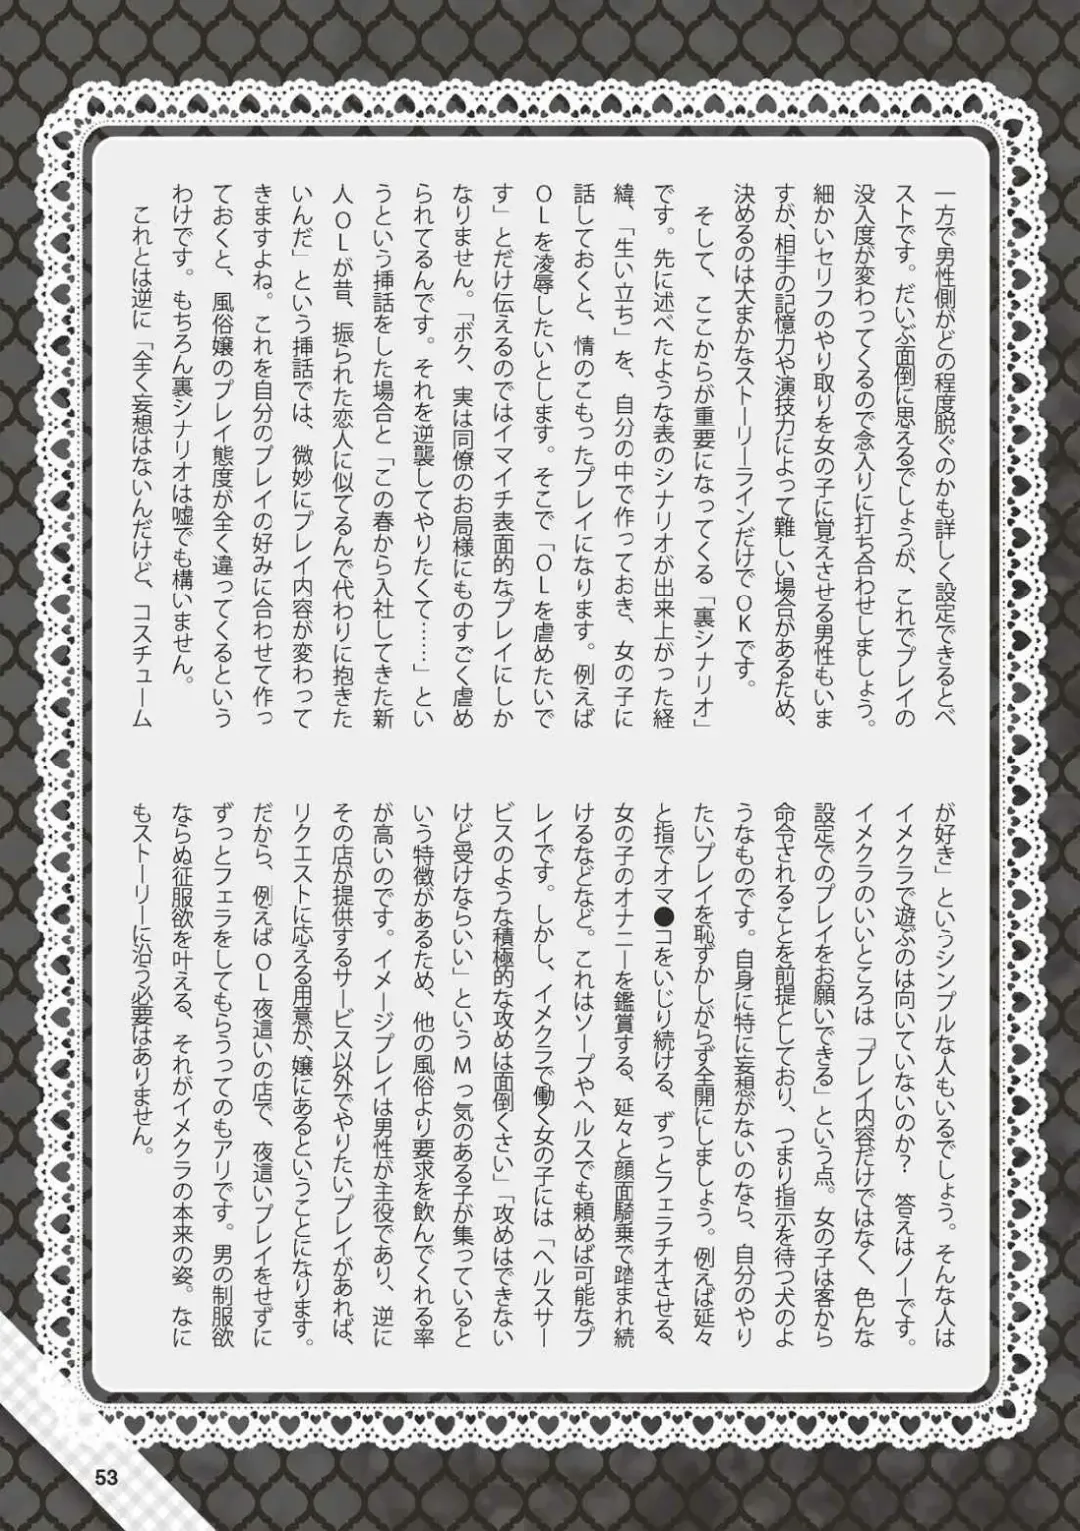 一方で男性側がどの程度脱ぐのかも詳しく設定できるとベ
ストです。だいぶ面倒に思えるでしょうが、これでプレイの
没入度が変わってくるので念入りに打ち合わせしましょう。
細かいセリフのやり取りを女の子に覚えさせる男性もいま
すが、相手の記憶力や演技力によって難しい場合があるため、
決めるのは大まかなストーリーラインだけでOKです。
そして、ここからが重要になってくる「裏シナリオ」
です。先に述べたような表のシナリオが出来上がった経
緯、「生い立ち」を、自分の中で作っておき、女の子に
話しておくと、情のこもったプレイになります。例えば
OLを凌辱したいとします。そこで「OLを虐めたいで
す」とだけ伝えるのではイマイチ表面的なプレイにしか
なりません。「ボク、実は同僚のお局様にものすごく虐め
られてるんです。それを逆襲してやりたくて……」とい
うという挿話をした場合と「この春から入社してきた新
人OLが昔、振られた恋人に似てるんで代わりに抱きた
いんだ」という挿話では、微妙にプレイ内容が変わって
きますよね。これを自分のプレイの好みに合わせて作っ
ておくと、風俗嬢のプレイ態度が全く違ってくるという
わけです。もちろん裏シナリオは嘘でも構いません。
これとは逆に「全く妄想はないんだけど、コスチューム
が好き」というシンプルな人もいるでしょう。そんな人は
イメクラで遊ぶのは向いていないのか?　答えはノーです。
イメクラのいいところは「プレイ内容だけではなく、色んな
設定でのプレイをお願いできる」という点。女の子は客から
命令されることを前提としており、つまり指示を待つ犬のよ
うなものです。自身に特に妄想がないのなら、自分のやり
たいプレイを恥ずかしがらず全開にしましょう。例えば延々
と指でオマ●コをいじり続ける、ずっとフェラチオさせる、
女の子のオナニーを鑑賞する、延々と顔面騎乗で踏まれ続
けるなどなど。これはソープやヘルスでも頼めば可能なプ
レイです。しかし、イメクラで働く女の子には「ヘルスサー
ビスのような積極的な攻めは面倒くさい」「攻めはできない
けど受けならいい」というMっ気のある子が集っていると
いう特徴があるため、他の風俗より要求を飲んでくれる率
が高いのです。イメージプレイは男性が主役であり、逆に
その店が提供するサービス以外でやりたいプレイがあれば、
リクエストに応える用意が、嬢にあるということになります。
だから、例えばOL夜這いの店で、夜這いプレイをせずに
ずっとフェラをしてもらうってのもアリです。男の制服欲
ならぬ征服欲を叶える、それがイメクラの本来の姿。なに
もストーリーに沿う必要はありません。
53